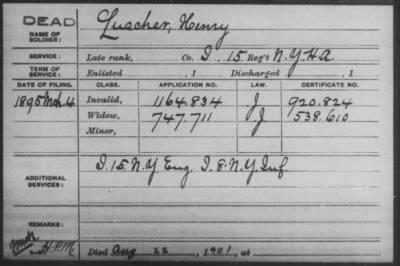 DEAD Luscher, Henry
NAME OF SOLDIER:
SERVICE: Late rank, Co. I, 15 Reg't N.Y.H.A.
TERM OF SERVICE: Enlisted , 1 Discharged , 1
DATE OF FILING. CLASS. APPLICATION NO. LAW. CERTIFICATE NO.
1895 Mch. 4 Invalid, 1164.834 J. 920.824
Widow, 747.711 J 538.610
Minor,
I. 15. N.Y. Eng. I. 8. N.Y. Inf.
ADDITIONAL SERVICES:
REMARKS:
H.P.M.
Died Aug 22, 1901, at